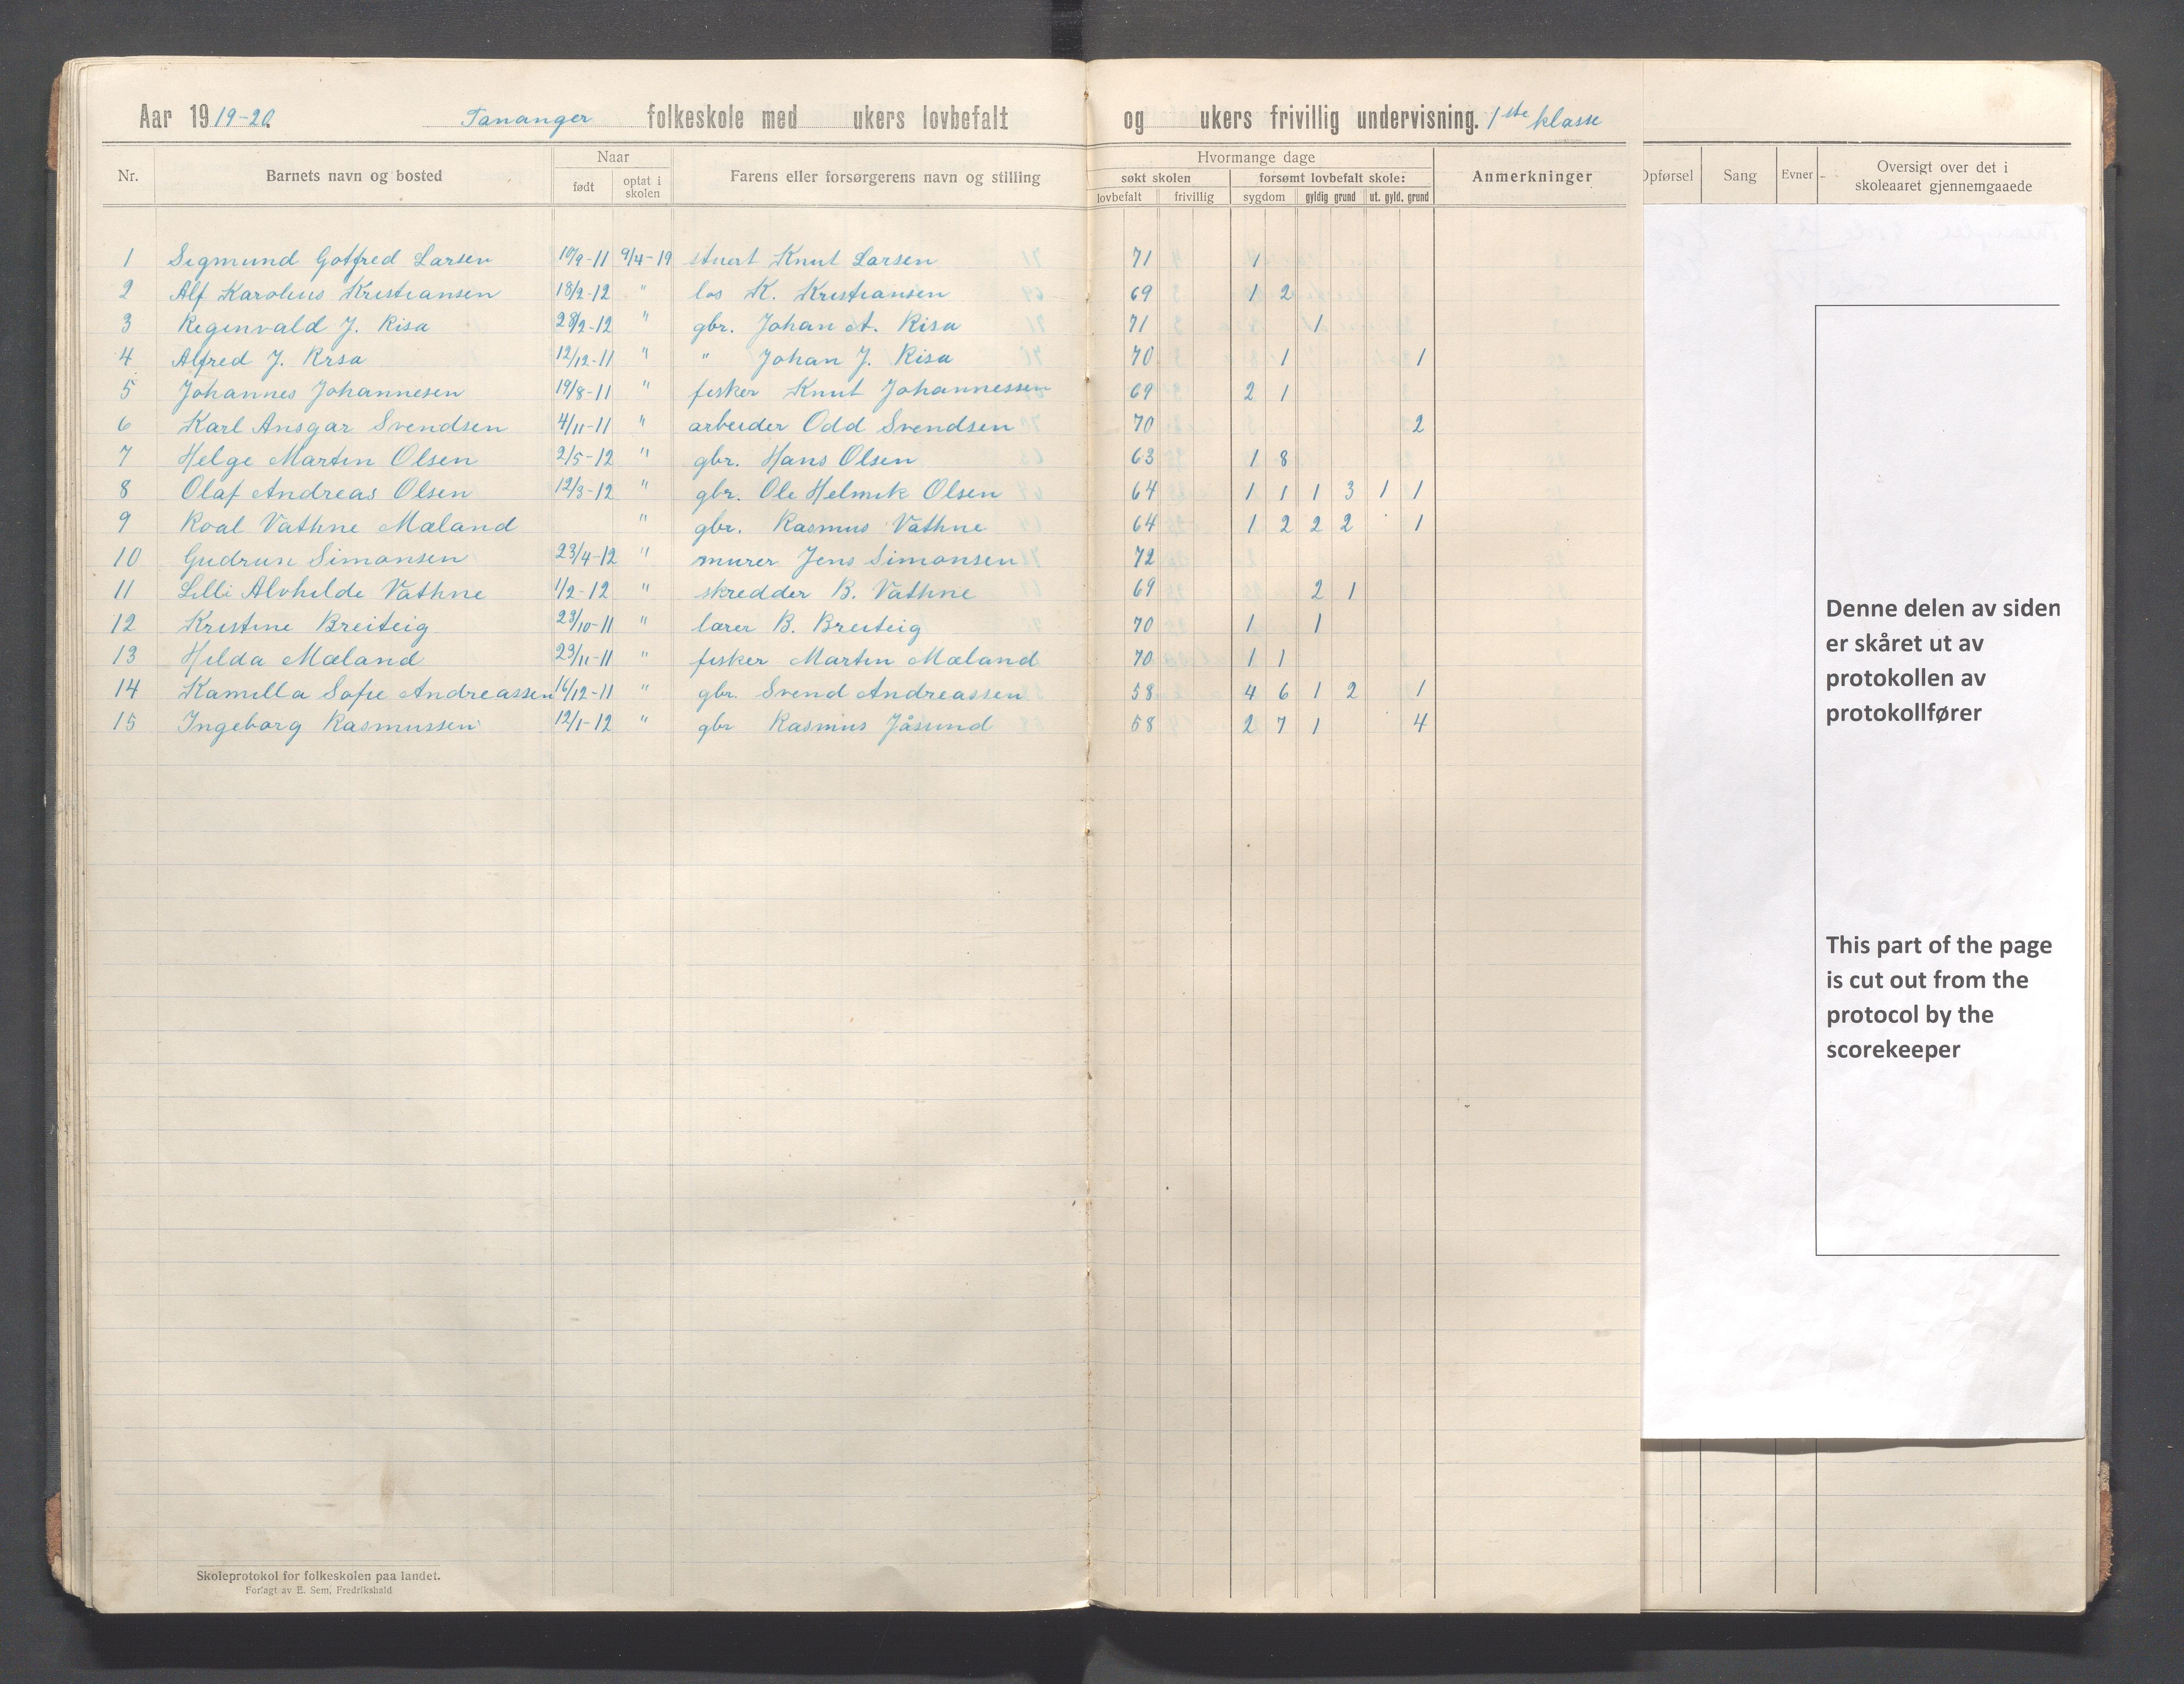 Aar 1919-20. Tananger folkeskole med ukers lovbefalt og ukers frivillig undervisning. 1ste klasse
Nr. Barnets navn og bosted Naar født optat i skolen Farens eller forsørgerens navn og stilling Hvormange dage søkt skolen lovbefalt frivillig forsømt lovbefalt skole: sygdom gyldig grund ut. gyld. grund Anmerkninger Opførsel Sang Evner Oversigt over det i skoleaaret gjennemgaaede
1 Sigmund Gotfred Larsen 10/9-11 9/4-19 stuert Knut Larsen 71 1
2 Alf Karolius Kristiansen 18/2-12 " los K. Kristiansen 69 1 2
3 Reginvald J. Risa 28/2-12 " gbr. Johan A. Risa 71 1
4 Alfred J. Risa 12/12-11 " " Johan J. Risa 70 1 1
5 Johannes Johannesen 19/8-11 " fisker Knut Johannessen 69 2 1
6 Karl Ansgar Svendsen 4/11-11 " arbeider Odd Svendsen 70 2
7 Helge Martin Olsen 2/5-12 " gbr. Hans Olsen 63 1 8
8 Olaf Andreas Olsen 12/3-12 " gbr. Ole Helmik Olsen 64 1 1 1 3 1 1
9 Roal Vathne Mæland " gbr. Rasmus Vathne 64 1 2 2 2 1
10 Gudrun Simonsen 23/4-12 " murer Jens Simonsen 72
11 Lilli Alvhilde Vathne 1/2-12 " skredder B. Vathne 69 2 1
12 Kristine Breiteig 23/10-11 " lærer B. Breiteig 70 1 1
13 Hilda Mæland 23/11-11 " fisker Martin Mæland 70 1 1
14 Kamilla Sofie Andreassen 16/12-11 " gbr. Svend Andreassen 58 4 6 1 2 1
15 Ingeborg Rasmussen 12/1-12 " gbr Rasmus Jåsund 58 2 7 1 4
Denne delen av siden
er skåret ut av
protokollen av
protokollfører
This part of the page
is cut out from the
protocol by the
scorekeeper
Skoleprotokol for folkeskolen paa landet.
Forlagt av E. Sem, Fredrikshald